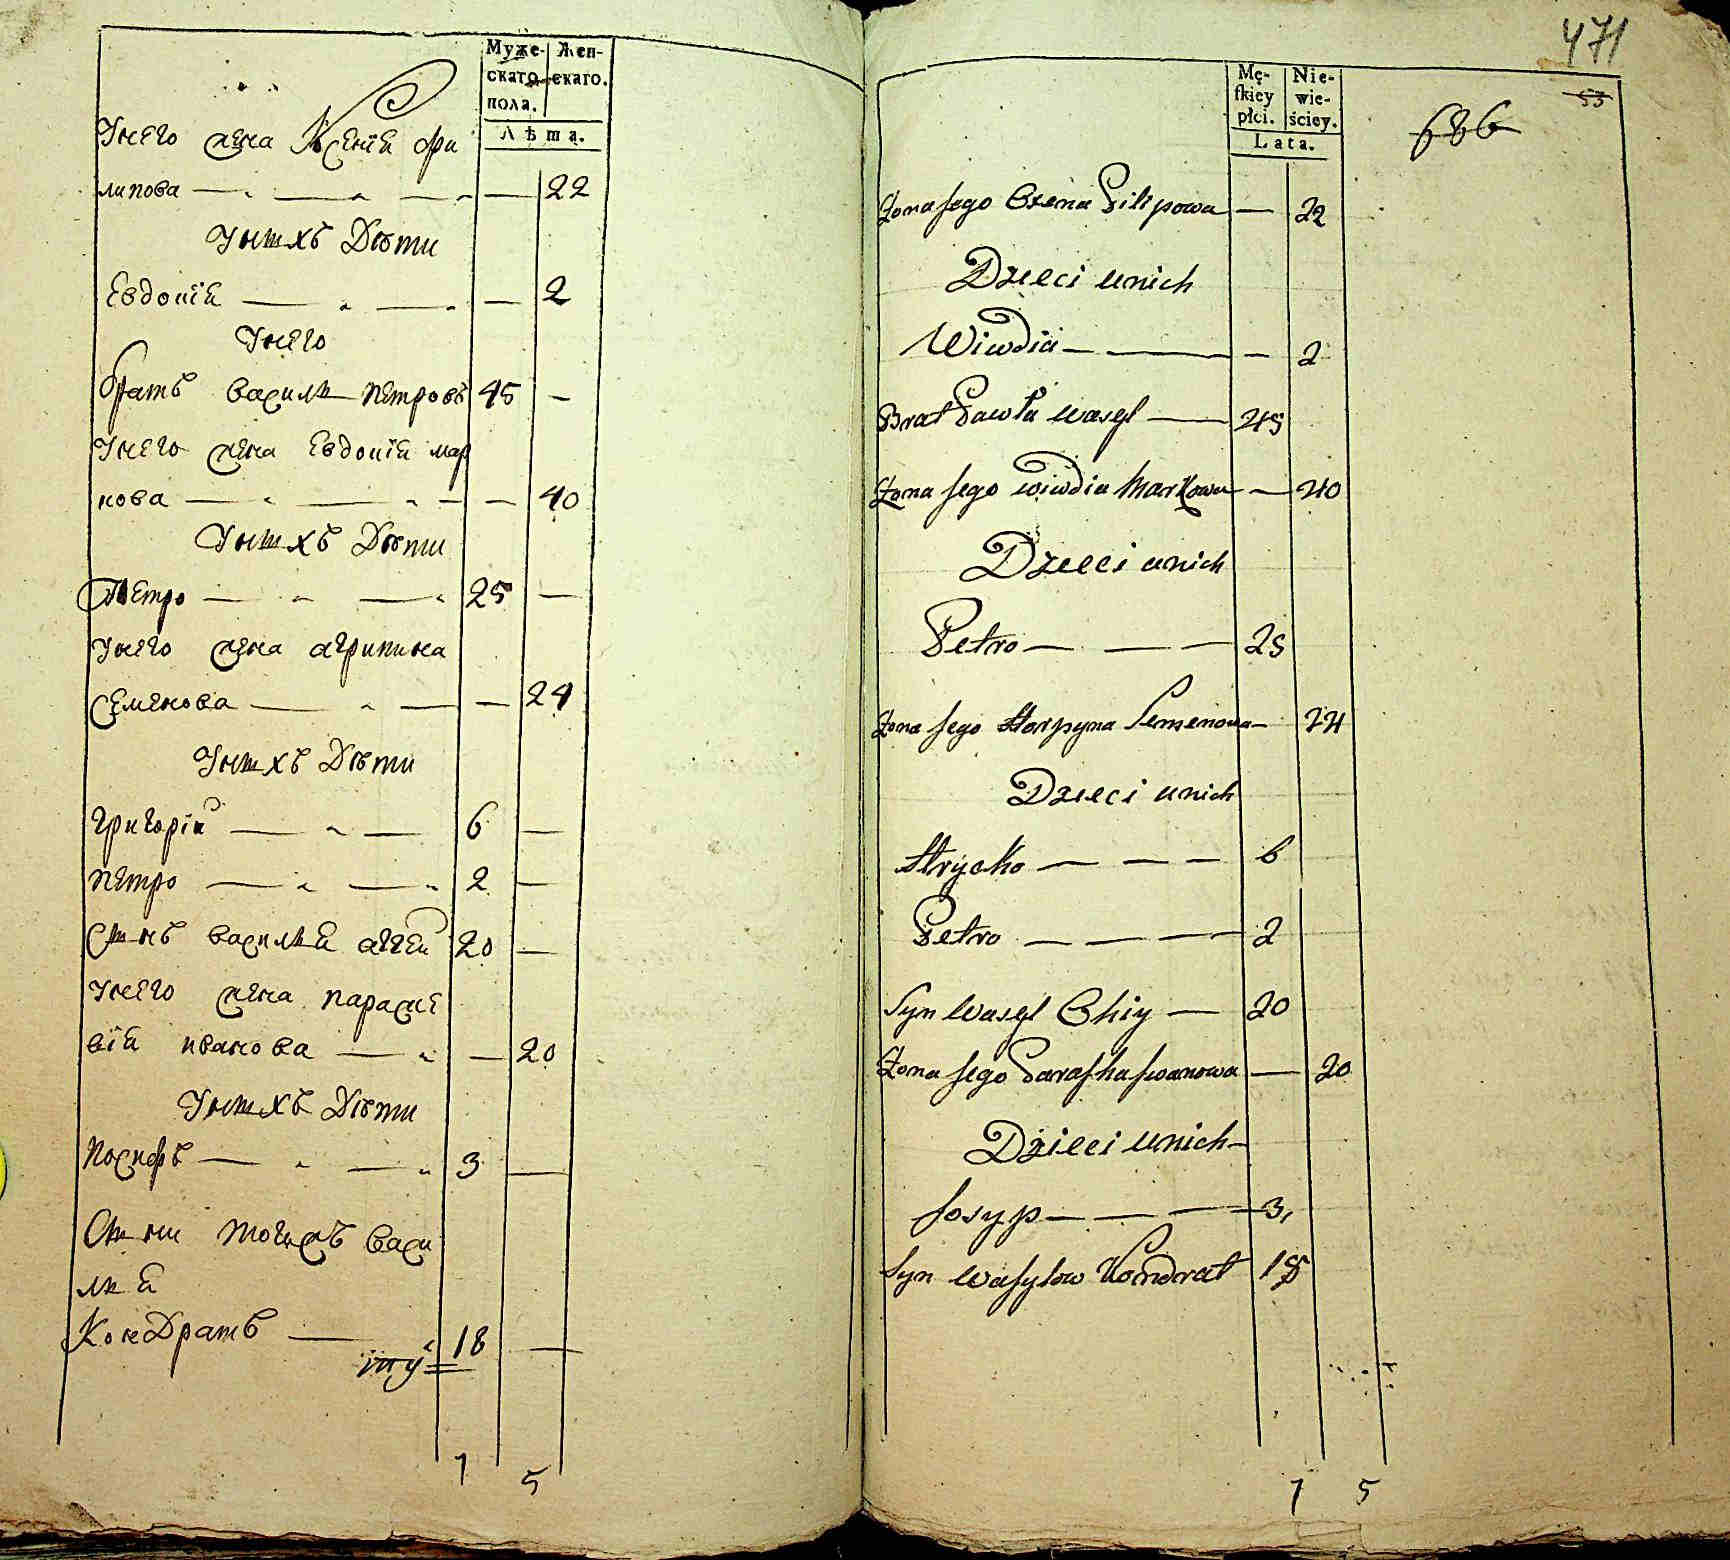 Муже- Жен-
скаго скаго.
пола.
Лѣта.
Унего жена Ксенія Фи
липова — — — — 22
Унихъ Дѣти
Евдокія — — — 2
Унего
братъ василий петровъ 45 —
Унего жена Евдокія мар
кова — — — — 40
Унихъ Дѣти
Петро — — 25 —
Унего жена агрипина
Семенова — — — 24
Унихъ Дѣти
григорій — — 6 —
петро — — 2 —
Синъ василія аггей 20 —
Унего жена параске
вія иванова — — 20
Унихъ Дѣти
иосифъ — — 3 —
Сини тогожъ васи
лия
Кондратъ — 18 —
7 5
471
53
686
Mę- Nie-
skiey wie-
płci. ściey.
Lata.
Żona Jego Oxena Filipowa — 22
Dzieci unich
Wiwdia — — — 2
Brat Pawła Wasyl — 45
Żona Jego Wiwdia Markowa — 40
Dzieci unich
Petro — — — 25
Żona Jego Harpyna Semenowa — 24
Dzieci unich
Hrycko — — — 6
Petro — — — 2
Syn Wasyl Ohiy — 20
Żona Jego Paraska Jwanowa — 20
Dzieci unich —
Josyp — — — 3,
Syn Wasylow Kondrat 18
7 5